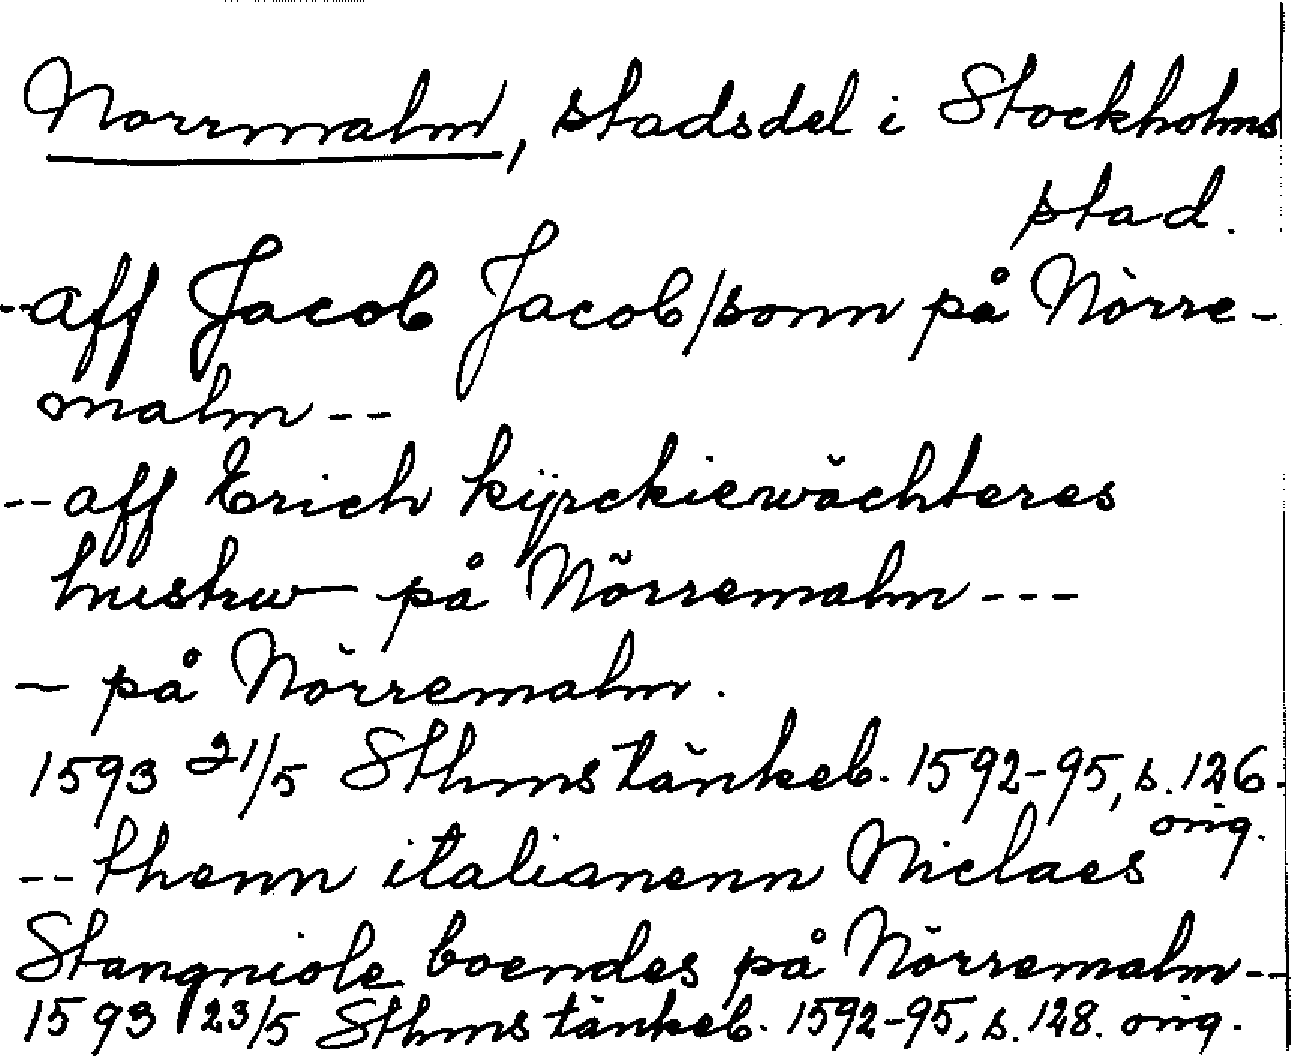 Norrmalm, stadsdel i Stockholms
stad.
--aff Jacob Jacob/sonn på Nörre-
malm--
--aff Erich kÿrckiewächteres
hustrw på Nörremalm---
– på Nörremalm.
1593 21/5 Sthms tänkeb. 1592-95, s. 126.
orig.
--thenn italianenn Niclaes
Stangniole boendes på Nörremalm--
1593 23/5 Sthms tänkeb. 1592-95, s. 128. orig.